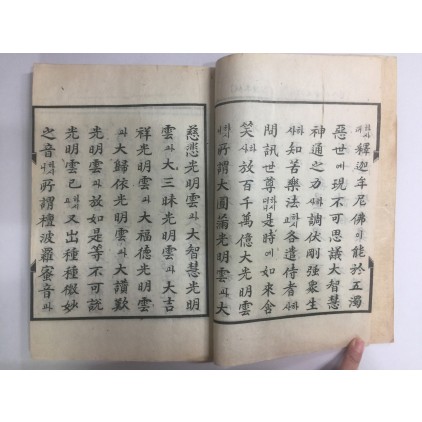 釋迦牟尼佛이 能於五濁
惡世에 現不可思議大智慧
神通之力하사 調伏剛強衆生
하사 知苦樂法 各遣侍者하사
問訊世尊 是時에 如來含
笑하사 放百千萬億大光明雲
하시니 所謂大圓滿光明雲과 大
慈悲光明雲과 大智慧光明
雲과 大三昧光明雲과 大吉
祥光明雲과 大福德光明雲
과 大歸依光明雲과 大讚歎
光明雲과 放如是等不可說
光明雲已 又出種種微妙
之音하시니 所謂檀波羅蜜音과